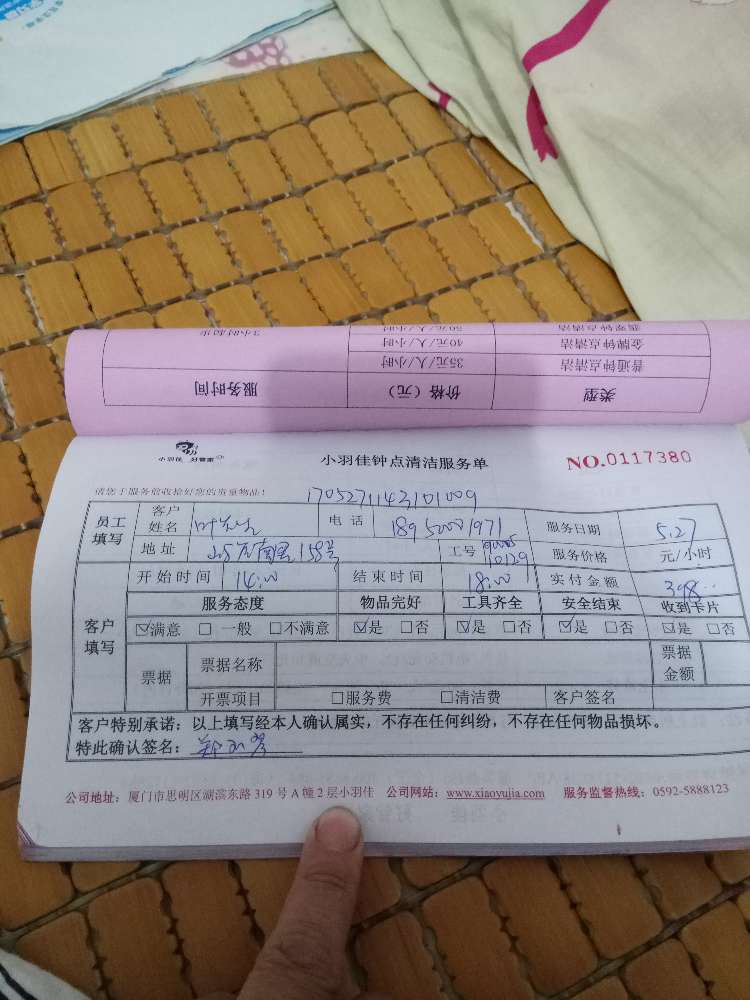 翡翠钟点清洁 50元/人/小时 3小时起步
金牌钟点清洁 40元/人/小时
普通钟点清洁 35元/人/小时
类型 价格（元） 服务时间
小羽佳 好管家
小羽佳钟点清洁服务单 NO.0117380
请您于服务前收拾好您的贵重物品！ 1705271143101009
员工填写 客户姓名 叶先生 电话 18950001971 服务日期 5.27
地址 158号 工号 10129 服务价格 元/小时
客户填写 开始时间 14:00 结束时间 18:00 实付金额 398
服务态度 物品完好 工具齐全 安全结束 收到卡片
☑满意 □一般 □不满意 ☑是 □否 ☑是 □否 ☑是 □否 ☑是 □否
票据 票据名称 票据金额
开票项目 □服务费 □清洁费 客户签名
客户特别承诺：以上填写经本人确认属实，不存在任何纠纷，不存在任何物品损坏。
特此确认签名：
公司地址：厦门市思明区湖滨东路 319 号 A 幢 2 层小羽佳 公司网站：www.xiaoyujia.com 服务监督热线：0592-5888123